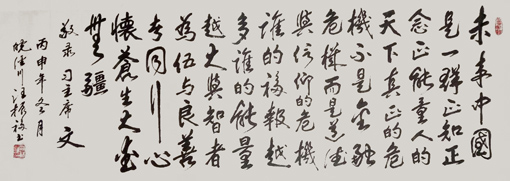 未来中國
是一群正知正
念正能量人的
天下真正的危
機不是金融
危機而是道德
與信仰的危機
誰的福報越
多誰的能量
越大與智者
為伍与良善
者同行心
懷蒼生大愛
無疆
敬录习主席文
丙申年冬月
川汪根福书